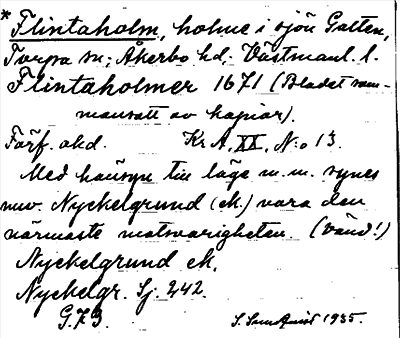 * Flintaholm, holme i sjön Galten,
Torpa sn; Åkerbo hd. Västmanl. l.
Flintaholmer 1671 (Bladet sam-
mansatt av kopior).
Förf. okd. Kr A, XX, N:o 13.
Med hänsyn till läge m. m. synes
nuv. Nyckelgrund (eK.) vara den
närmaste motsvarigheten. (vänd!)
Nyckelgrund eK.
Nyckelgr. Sj. 242.
G. 73. 1935.